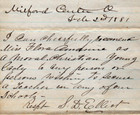 Milford Center O
Feb 2nd 1881
I Can cheerfully recommend
Miss Flora
as a moral Christian Young
Lady to any person or
persons wishing to secure
a Teacher in any of our
Schools.
Rept S. D.